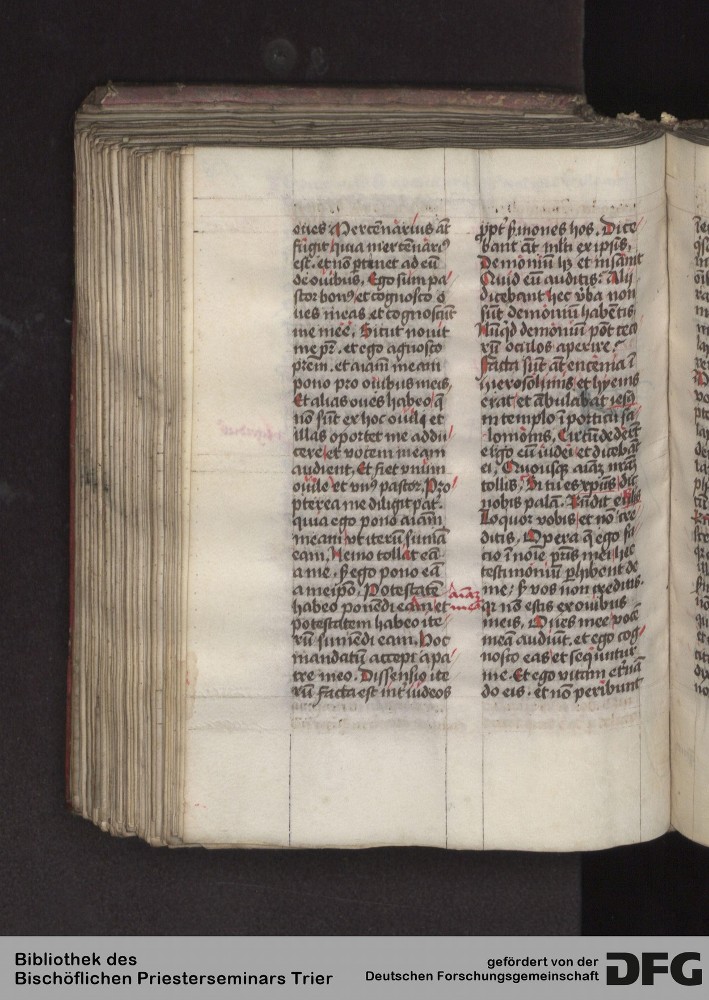 oues Mercēnarius āt
fugit quia mercēnariꝰ
est. et nō ꝑtinet ad eū
de ouibus. Ego sum pa
stor bonꝰ et cognosco o
ues meas et cognoscūt
me mee. Sicut nouit
me pr̄. et ego agnosco
prēm. et aīam meam
pono pro ouibus meis.
Et alias oues habeo q̄
nō sūt ex hoc ouili et
illas oportet me addu
cere et vocem meam
audient. Et fiet vnum
ouile et vnꝰ pastor. Pro
pterea me diligit pat̄.
quia ego pono aīam
meam vt iterū sumā
eam. Nemo tollit eā
a me. sꝫ ego pono eā
a meip̄o. Potestatē
habeo ponēdi eam et
potestatem habeo ite
rū sumēdi eam. Hoc
mandatū accepi a pa
tre meo. Dissensio ite
rū facta est int̄ iudeos
ꝓpt̄ ẜmones hos. Dice
bant āt mlti ex ipsis,
Demoniū hꝫ et insanit
Quid eū auditis. Alij
dicebant hec v̄ba non
sūt demoniū habētis
Nūqd demoniū pōt ceco
rū oculos aperire.
Facta sūt āt encenia ī
iherosolimis et hyems
erat et ābulabat iesꝰ
in templo ī porticu sa
lomonis. Circūdederūt
ergo eū iudei et dicebāt
ei. Quousqꝫ aīaꝫ nrām
tollis. Si tu es xp̄us dic
nobis palā. Rn̄dit eis
Loquor vobis et nō cre
ditis. Opera q̄ ego fa
cio ī noīe pr̄is mei hec
testimoniū ꝑhibent de
me, sꝫ vos non creditis.
qr nō estis ex ouibus
meis. Oues mee vocē
meā audiūt. et ego cog
nosco eas et sequūtur
me. Et ego vitam et̄nā
do eis. et nō peribunt
Bibliothek des
Bischöflichen Priesterseminars Trier
gefördert von der
Deutschen Forschungsgemeinschaft
DFG